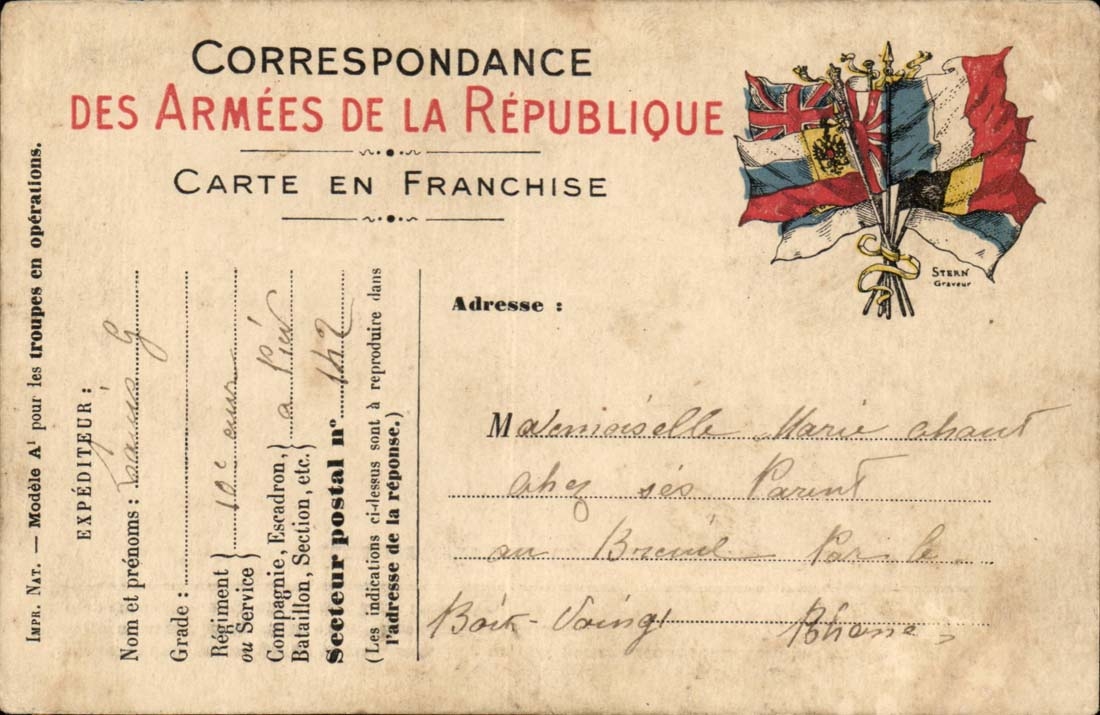 CORRESPONDANCE
DES ARMÉES DE LA RÉPUBLIQUE
CARTE EN FRANCHISE
STERN
Graveur
IMPR. NAT. — Modèle A¹ pour les troupes en opérations.
EXPÉDITEUR :
Nom et prénoms : G
Grade :
Régiment ou Service } 10e
Compagnie, Escadron, Bataillon, Section, etc. } à Pied
Secteur postal n° 142
(Les indications ci-dessus sont à reproduire dans
l'adresse de la réponse.)
Adresse :
Mademoiselle Marie
chez ses Parent
au Breuil Par le
Bois-
Rhone